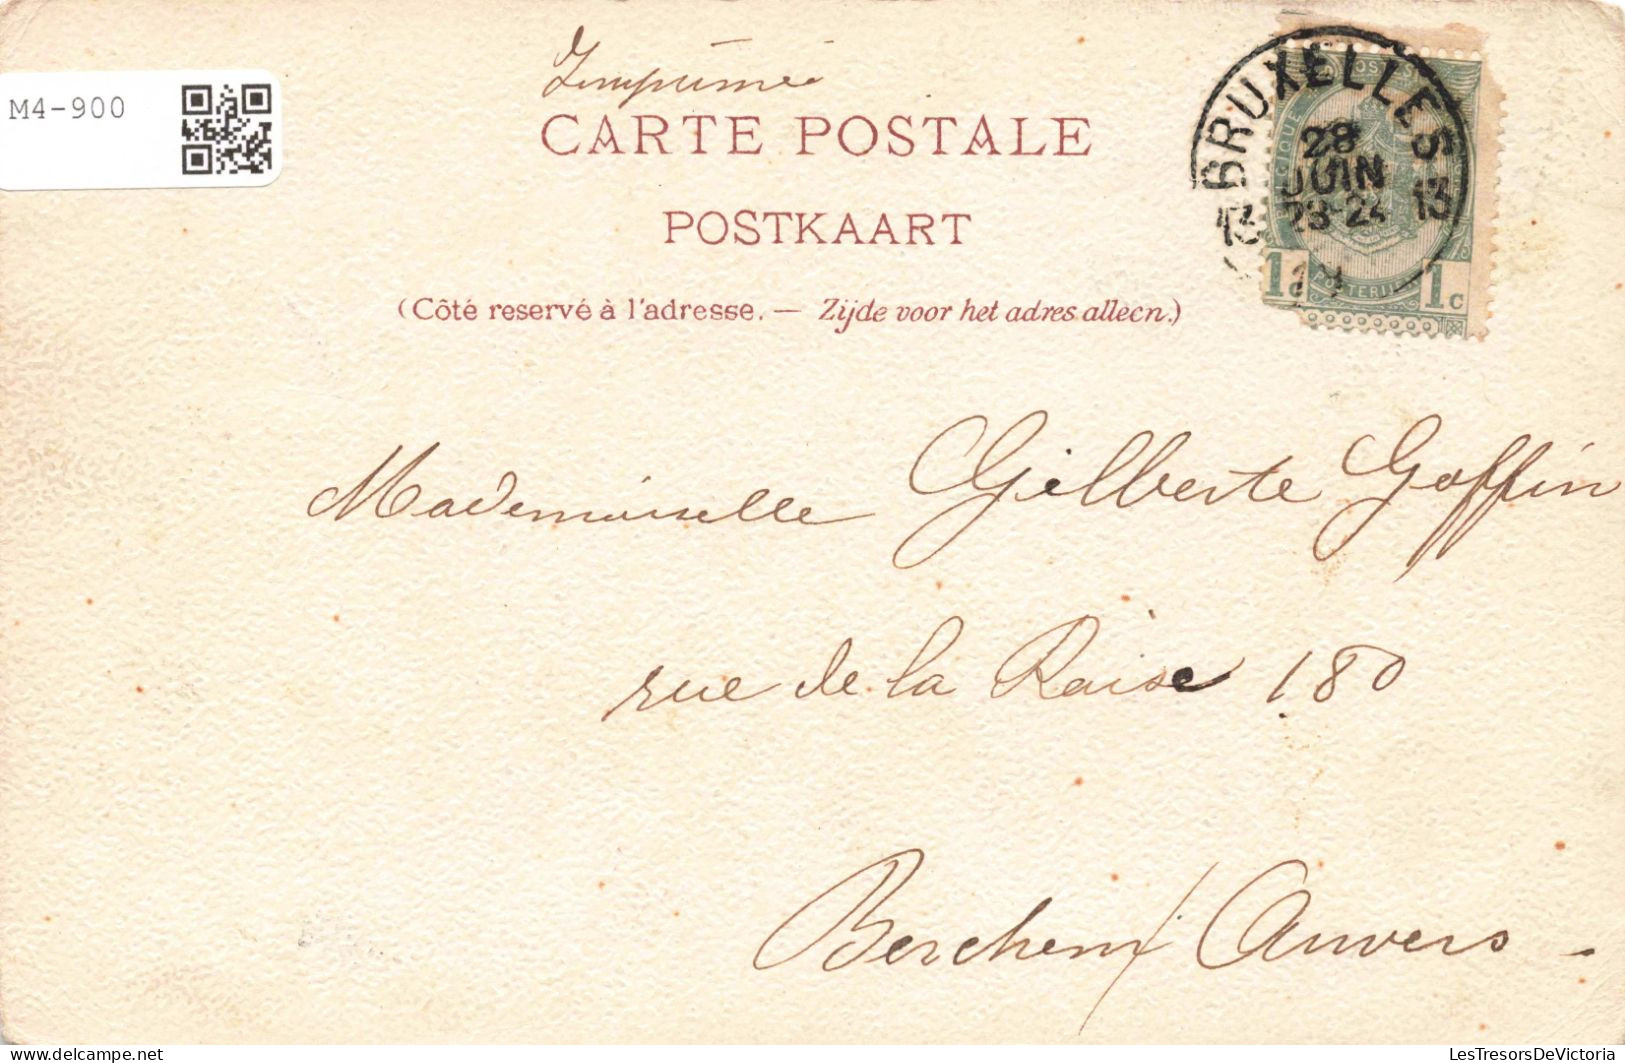 M4-900
Imprimé
CARTE POSTALE
POSTKAART
(Côté reservé à l'adresse. — Zijde voor het adres alleen.)
BRUXELLES
28
JUIN
23-24
13 13
BELGIQUE
POSTERIJEN
1c 1c
Mademoiselle Gilberte Goffin
rue de la Raise 180
Berchem / Anvers -
delcampe.net
LesTresorsDeVictoria